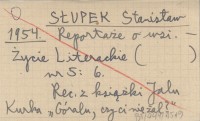 SŁUPEK Stanisław
1954. Reportaże o wsi. –
Życie Literackie ( )
nr 5: 6.
Rec. z książki Jalu
Kurka "Góralu, czy ci nie żal?"